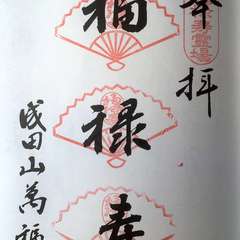 奉拝
福
禄
寿
成田山萬福